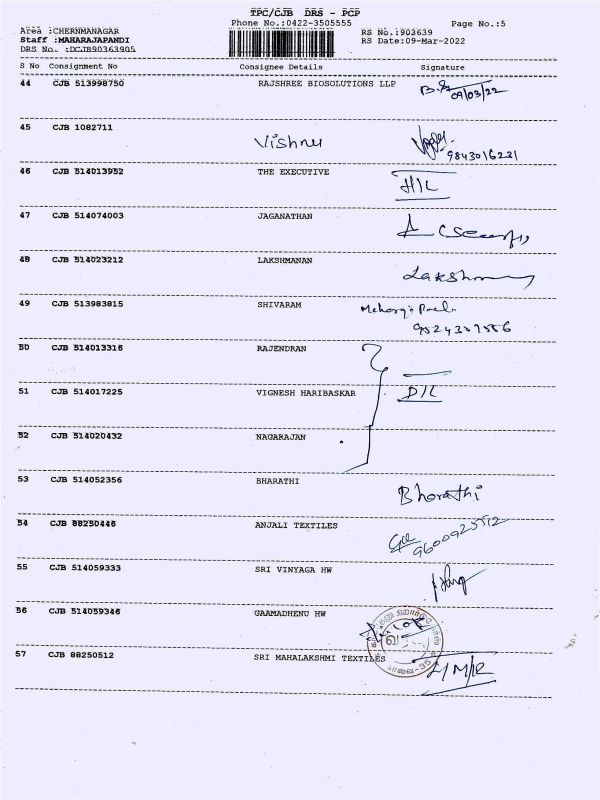 TPC/CJB DRS - PCP
Phone No.:0422-3505555
Page No.:5
Area :CHERNMANAGAR
RS No.:903639
Staff :MAHARAJAPANDI
RS Date:09-Mar-2022
DRS No. :DCJB90363905
S No Consignment No Consignee Details Signature
44 CJB 513998750 RAJSHREE BIOSOLUTIONS LLP
09/03/22
45 CJB 1082711 Vishnu
9843016231
46 CJB 514013952 THE EXECUTIVE H/L
47 CJB 514074003 JAGANATHAN
48 CJB 514023212 LAKSHMANAN
49 CJB 513983815 SHIVARAM
50 CJB 514013316 RAJENDRAN
51 CJB 514017225 VIGNESH HARIBASKAR D/L
52 CJB 514020432 NAGARAJAN
53 CJB 514052356 BHARATHI Bharathi
54 CJB 88250446 ANJALI TEXTILES
55 CJB 514059333 SRI VINYAGA HW
56 CJB 514059346 GAAMADHENU HW
57 CJB 88250512 SRI MAHALAKSHMI TEXTILES